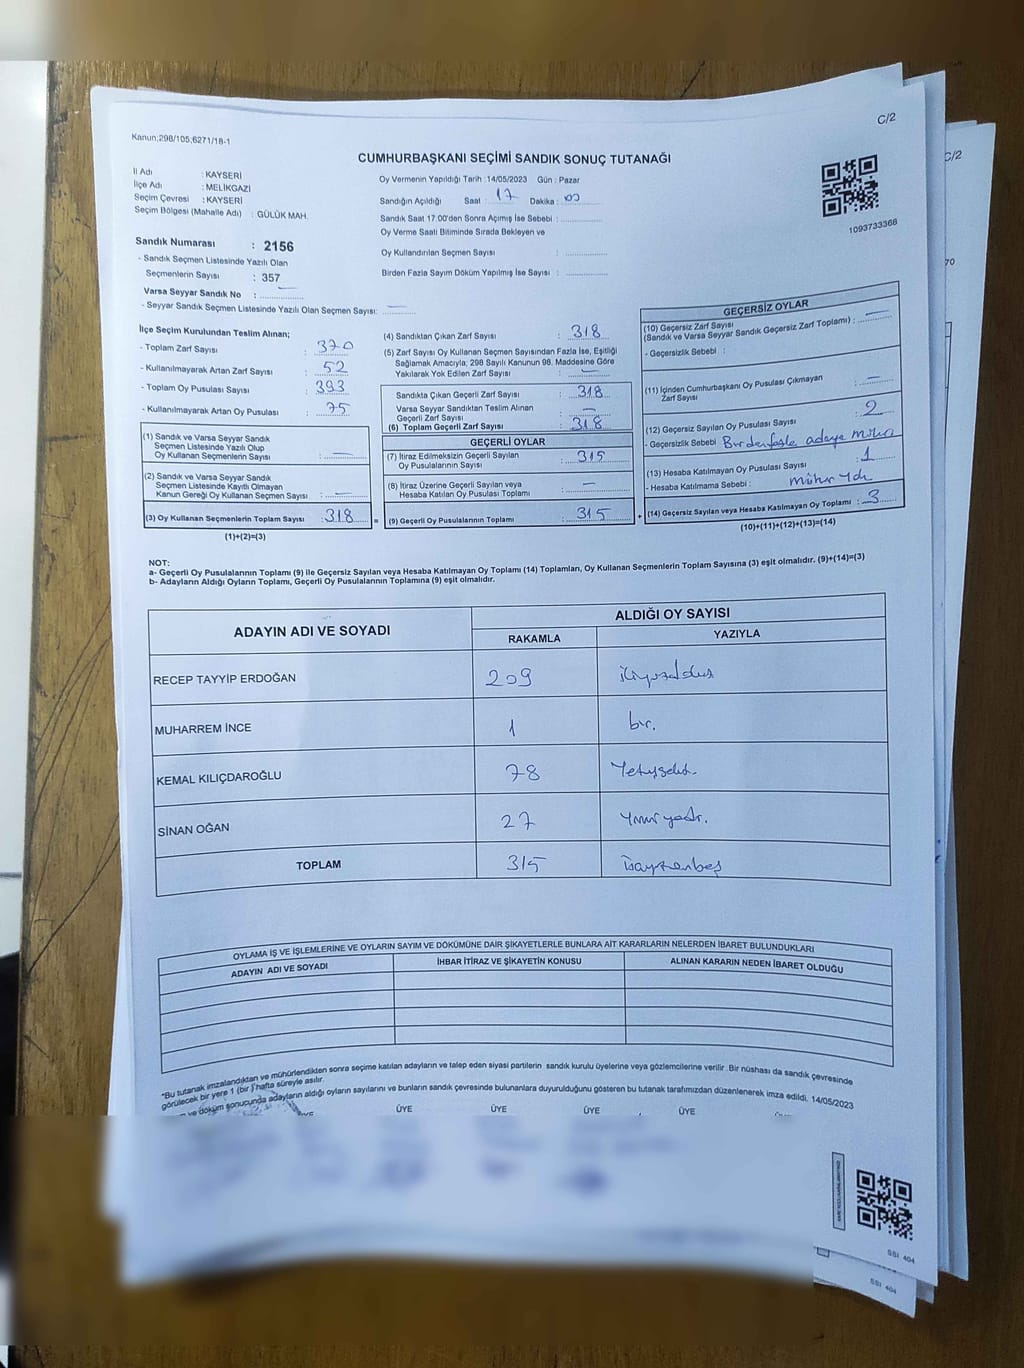 C/2
Kanun:298/105,6271/18-1
CUMHURBAŞKANI SEÇİMİ SANDIK SONUÇ TUTANAĞI
İl Adı : KAYSERİ
İlçe Adı : MELİKGAZİ
Seçim Çevresi : KAYSERİ
Seçim Bölgesi (Mahalle Adı) : GÜLÜK MAH.
Oy Vermenin Yapıldığı Tarih :14/05/2023 Gün : Pazar
Sandığın Açıldığı Saat : 17 Dakika :
Sandık Saat 17.00'den Sonra Açımış İse Sebebi :
Oy Verme Saati Bitiminde Sırada Bekleyen ve
Oy Kullandırılan Seçmen Sayısı :
Birden Fazla Sayım Döküm Yapılmış İse Sayısı :
1093733368
Sandık Numarası : 2156
- Sandık Seçmen Listesinde Yazılı Olan
Seçmenlerin Sayısı : 357
Varsa Seyyar Sandık No : —
- Seyyar Sandık Seçmen Listesinde Yazılı Olan Seçmen Sayısı: —
İlçe Seçim Kurulundan Teslim Alınan;
- Toplam Zarf Sayısı : 370
- Kullanılmayarak Artan Zarf Sayısı : 52
- Toplam Oy Pusulası Sayısı : 393
- Kullanılmayarak Artan Oy Pusulası : 75
(1) Sandık ve Varsa Seyyar Sandık
Seçmen Listesinde Yazılı Olup
Oy Kullanan Seçmenlerin Sayısı : —
(2) Sandık ve Varsa Seyyar Sandık
Seçmen Listesinde Kayıtlı Olmayan
Kanun Gereği Oy Kullanan Seçmen Sayısı : —
(3) Oy Kullanan Seçmenlerin Toplam Sayısı : 318
(1)+(2)=(3)
(4) Sandıktan Çıkan Zarf Sayısı : 318
(5) Zarf Sayısı Oy Kullanan Seçmen Sayısından Fazla İse, Eşitliği
Sağlamak Amacıyla, 298 Sayılı Kanunun 98. Maddesine Göre
Yakılarak Yok Edilen Zarf Sayısı : —
Sandıkta Çıkan Geçerli Zarf Sayısı : 318
Varsa Seyyar Sandıktan Teslim Alınan
Geçerli Zarf Sayısı : —
(6) Toplam Geçerli Zarf Sayısı : 318
GEÇERLİ OYLAR
(7) İtiraz Edilmeksizin Geçerli Sayılan
Oy Pusulalarının Sayısı : 315
(8) İtiraz Üzerine Geçerli Sayılan veya
Hesaba Katılan Oy Pusulası Toplamı : —
= (9) Geçerli Oy Pusulalarının Toplamı : 315
GEÇERSİZ OYLAR
(10) Geçersiz Zarf Sayısı
(Sandık ve Varsa Seyyar Sandık Geçersiz Zarf Toplamı) : —
- Geçersizlik Sebebi :
(11) İçinden Cumhurbaşkanı Oy Pusulası Çıkmayan
Zarf Sayısı : —
(12) Geçersiz Sayılan Oy Pusulası Sayısı : 2
- Geçersizlik Sebebi : Birdenfazla adaya mühür
(13) Hesaba Katılmayan Oy Pusulası Sayısı : 1
- Hesaba Katılmama Sebebi : mühür Yok
+ (14) Geçersiz Sayılan veya Hesaba Katılmayan Oy Toplamı : 3
(10)+(11)+(12)+(13)=(14)
NOT:
a- Geçerli Oy Pusulalarının Toplamı (9) ile Geçersiz Sayılan veya Hesaba Katılmayan Oy Toplamı (14) Toplamları, Oy Kullanan Seçmenlerin Toplam Sayısına (3) eşit olmalıdır. (9)+(14)=(3)
b- Adayların Aldığı Oyların Toplamı, Geçerli Oy Pusulalarının Toplamına (9) eşit olmalıdır.
ADAYIN ADI VE SOYADI ALDIĞI OY SAYISI
RAKAMLA YAZIYLA
RECEP TAYYİP ERDOĞAN 209 ikiyüzdokuz
MUHARREM İNCE 1 bir.
KEMAL KILIÇDAROĞLU 78 Yetmişsekiz.
SİNAN OĞAN 27 Yirmiyedi.
TOPLAM 315 üçyüzonbeş
OYLAMA İŞ VE İŞLEMLERİNE VE OYLARIN SAYIM VE DÖKÜMÜNE DAİR ŞİKAYETLERLE BUNLARA AİT KARARLARIN NELERDEN İBARET BULUNDUKLARI
ADAYIN ADI VE SOYADI İHBAR İTİRAZ VE ŞİKAYETİN KONUSU ALINAN KARARIN NEDEN İBARET OLDUĞU
*Bu tutanak imzalandıktan ve mühürlendikten sonra seçime katılan adayların ve talep eden siyasi partilerin sandık kurulu üyelerine veya gözlemcilerine verilir. Bir nüshası da sandık çevresinde
görülecek bir yere 1 (bir ) hafta süreyle asılır.
ve döküm sonucunda adayların aldığı oyların sayılarını ve bunların sandık çevresinde bulunanlara duyurulduğunu gösteren bu tutanak tarafımızdan düzenlenerek imza edildi. 14/05/2023
ÜYE ÜYE ÜYE ÜYE
SSI 404
C/2
70
SSI 404